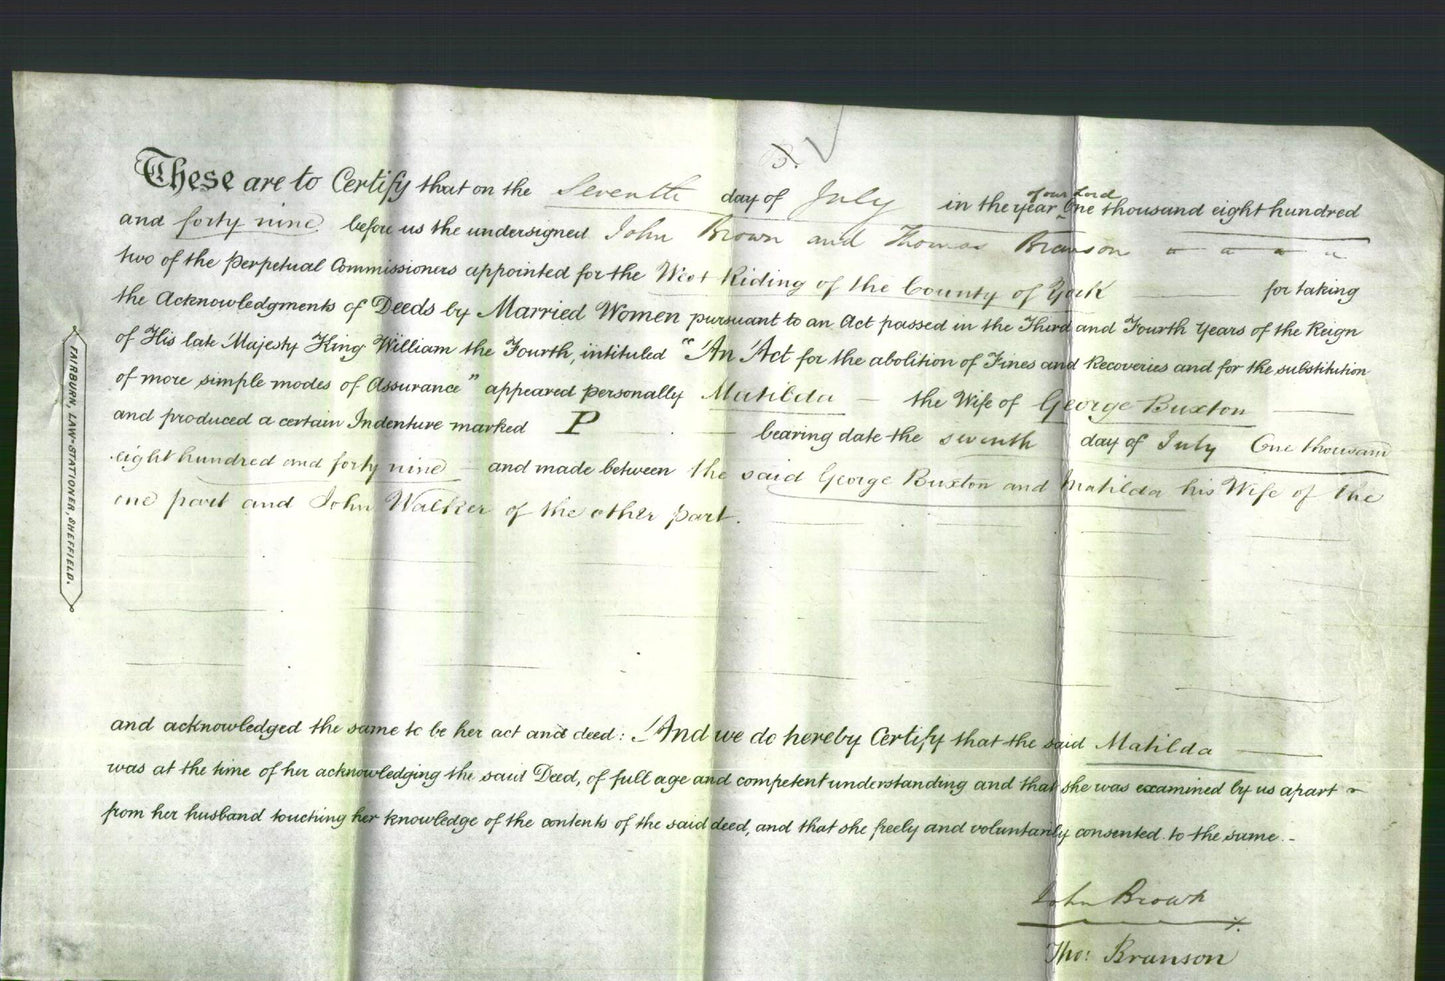 These are to Certify that on the Seventh day of July in the year of our Lord One thousand eight hundred
and forty nine before us the undersigned John Brown and Thomas Branson
two of the Perpetual Commissioners appointed for the West Riding of the County of York for taking
the Acknowledgments of Deeds by Married Women pursuant to an Act passed in the Third and Fourth Years of the Reign
of His late Majesty King William the Fourth, intituled "An Act for the abolition of Fines and Recoveries and for the substitution
of more simple modes of Assurance" appeared personally Matilda the Wife of George Buxton
and produced a certain Indenture marked P bearing date the seventh day of July One thousand
eight hundred and forty nine and made between the said George Buxton and Matilda his Wife of the
one part and John Walker of the other part.
and acknowledged the same to be her act and deed: And we do hereby Certify that the said Matilda
was at the time of her acknowledging the said Deed, of full age and competent understanding and that she was examined by us apart
from her husband touching her knowledge of the contents of the said deed, and that she freely and voluntarily consented to the same.
John Brown
Tho: Branson
FAIRBURN, LAW-STATIONER, SHEFFIELD.